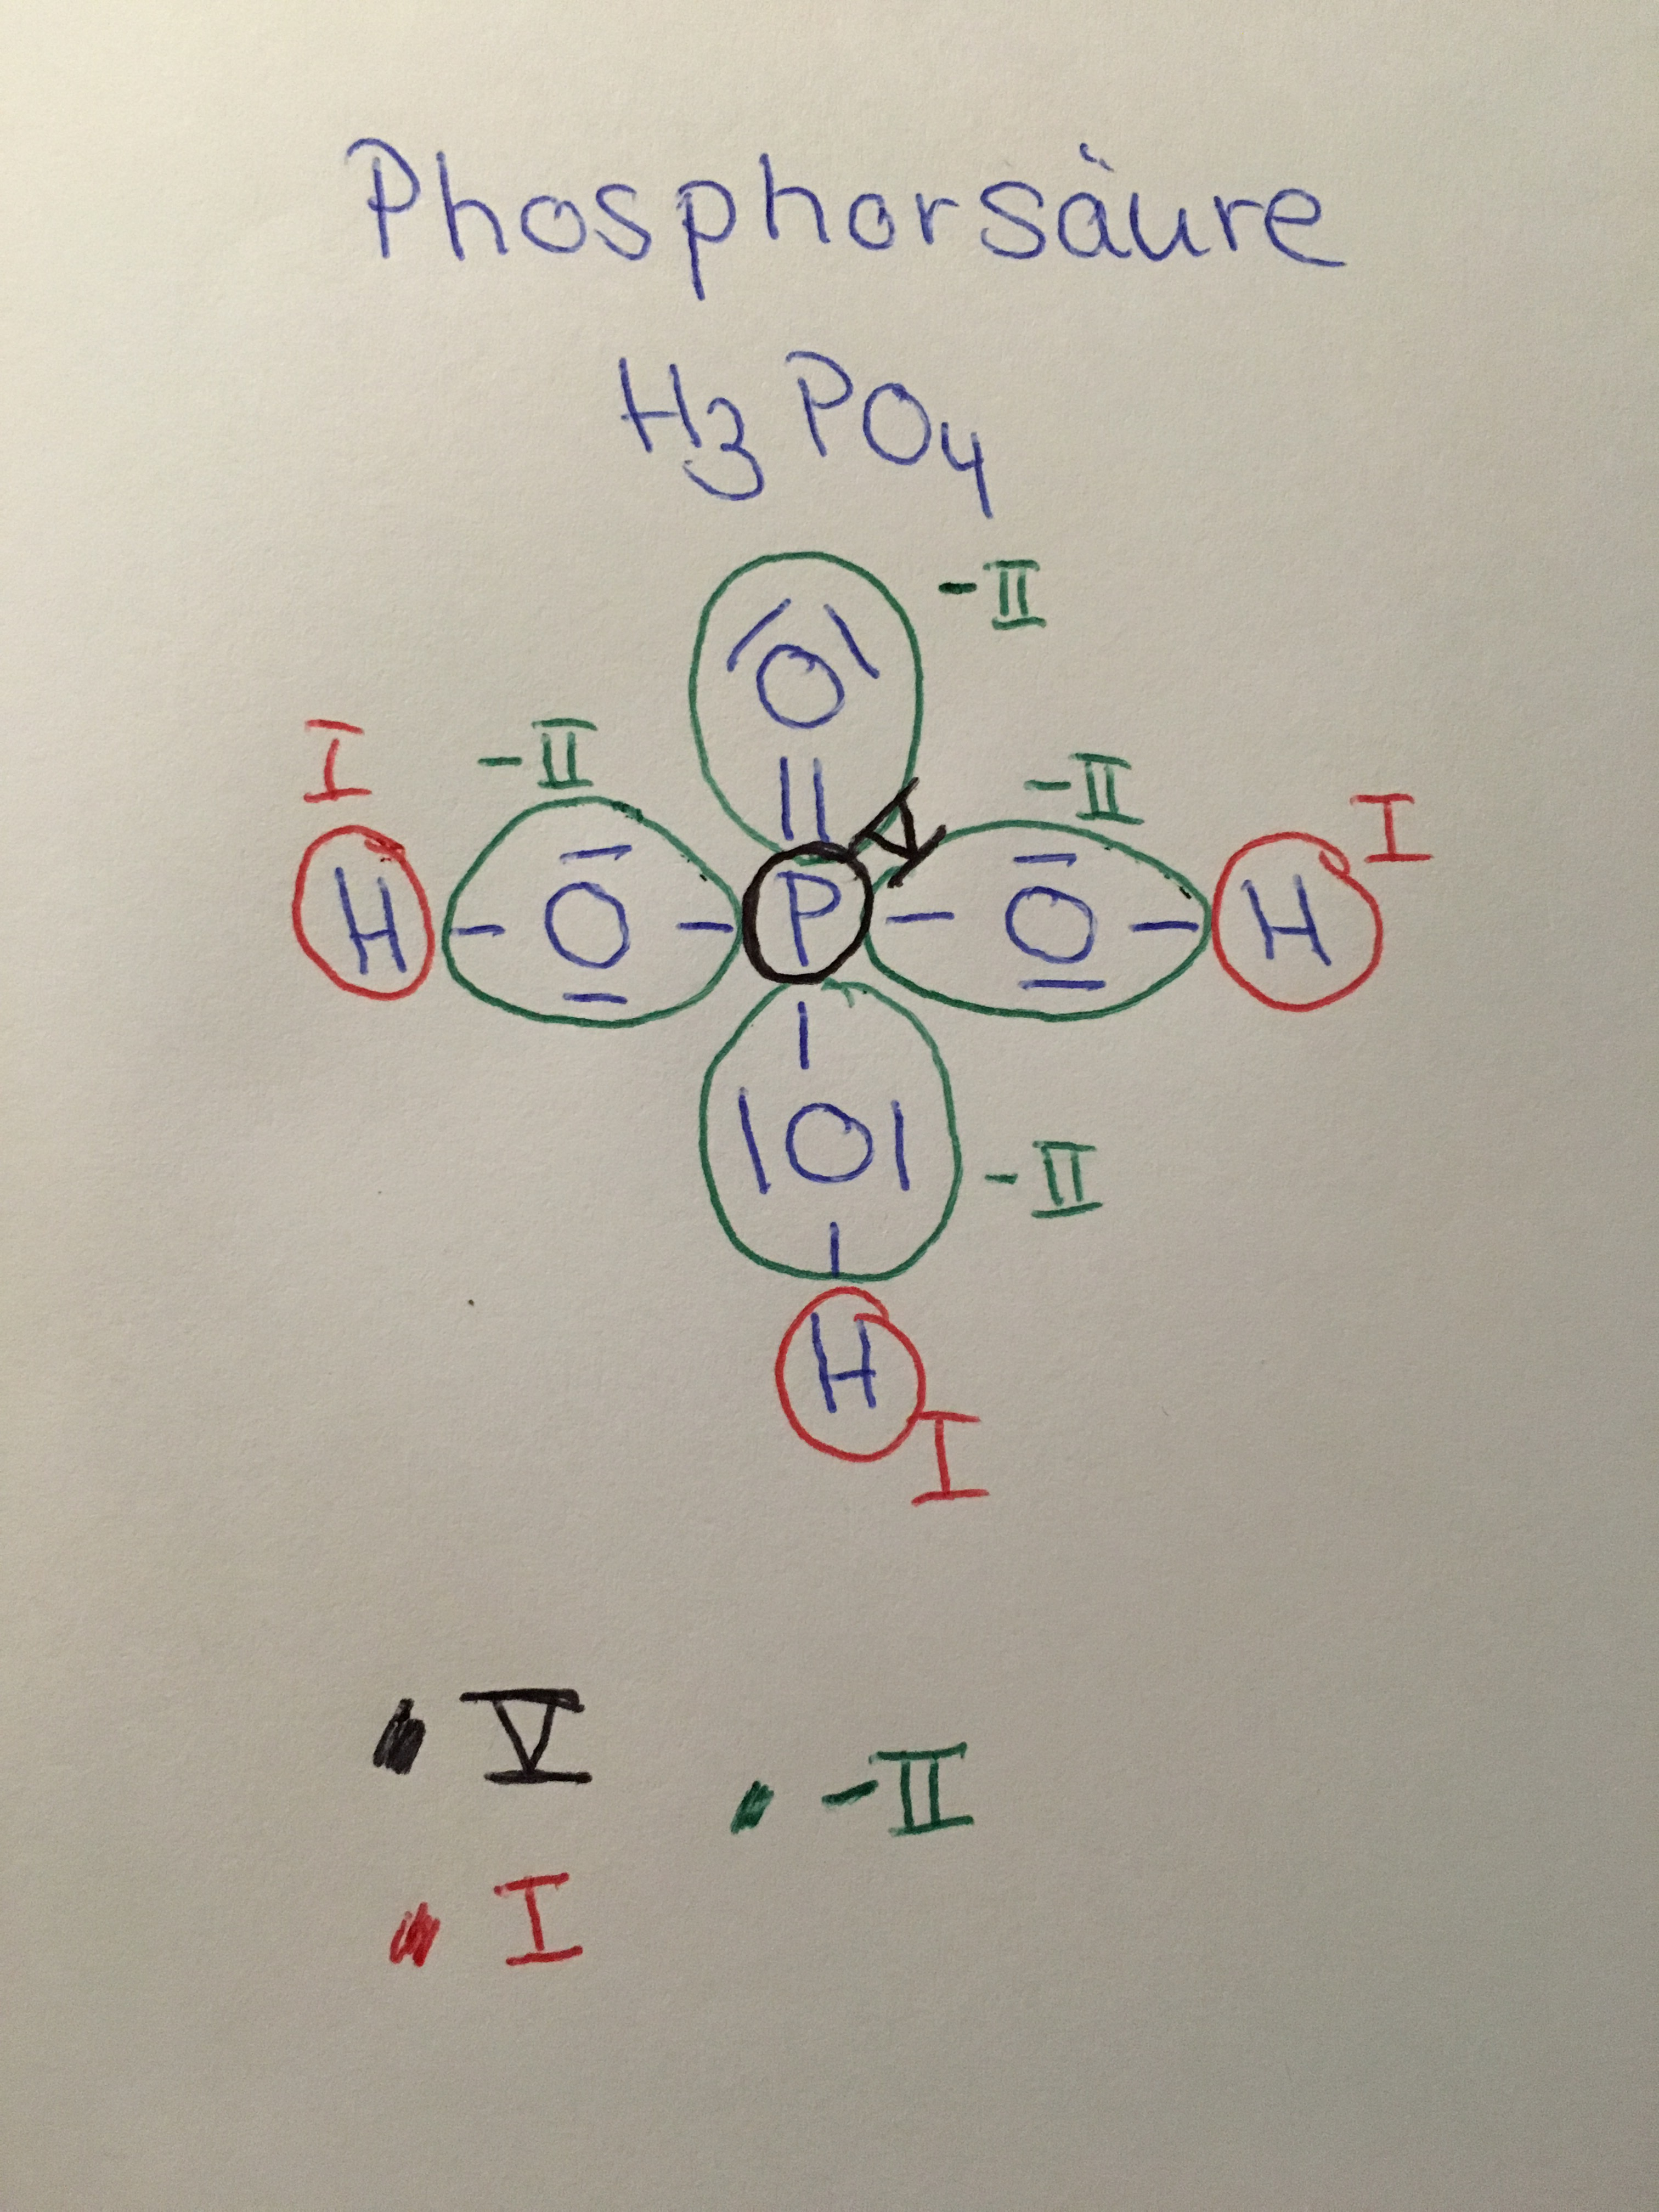 Phosphorsäure
H3PO4
-II
O
I -II -II I
V
H - O - P - O - H
O
-II
H
I
V
-II
I